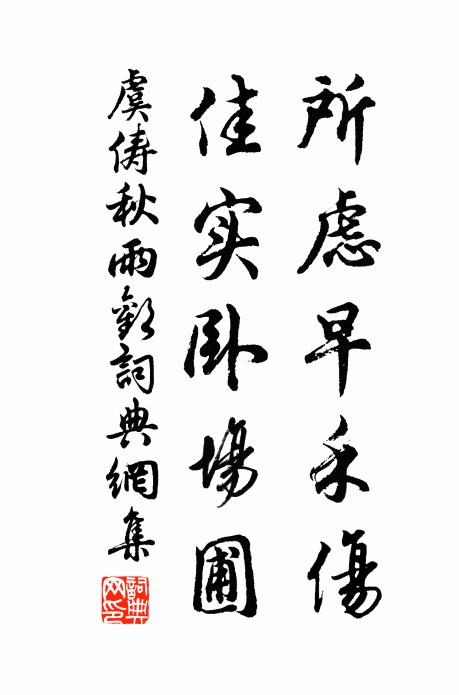 所慮早禾傷
佳实卧場圃
虞儔秋雨歎詞典網集
詞典網印